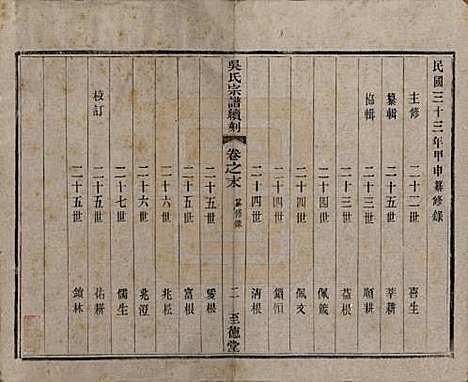 民國三十三年甲申纂修錄
主修 二十二世 喜生
纂輯 二十五世 莘耕
協輯 二十五世 順耕
二十三世 益根
二十四世 佩箴
二十四世 佩文
二十四世 鎖恒
二十四世 清根
吳氏宗譜續刻 卷之末 纂修錄 二 至德堂
二十五世 雯根
二十五世 富根
二十六世 兆松
二十六世 兆澄
二十七世 儒生
校訂 二十五世 祐耕
二十五世 林